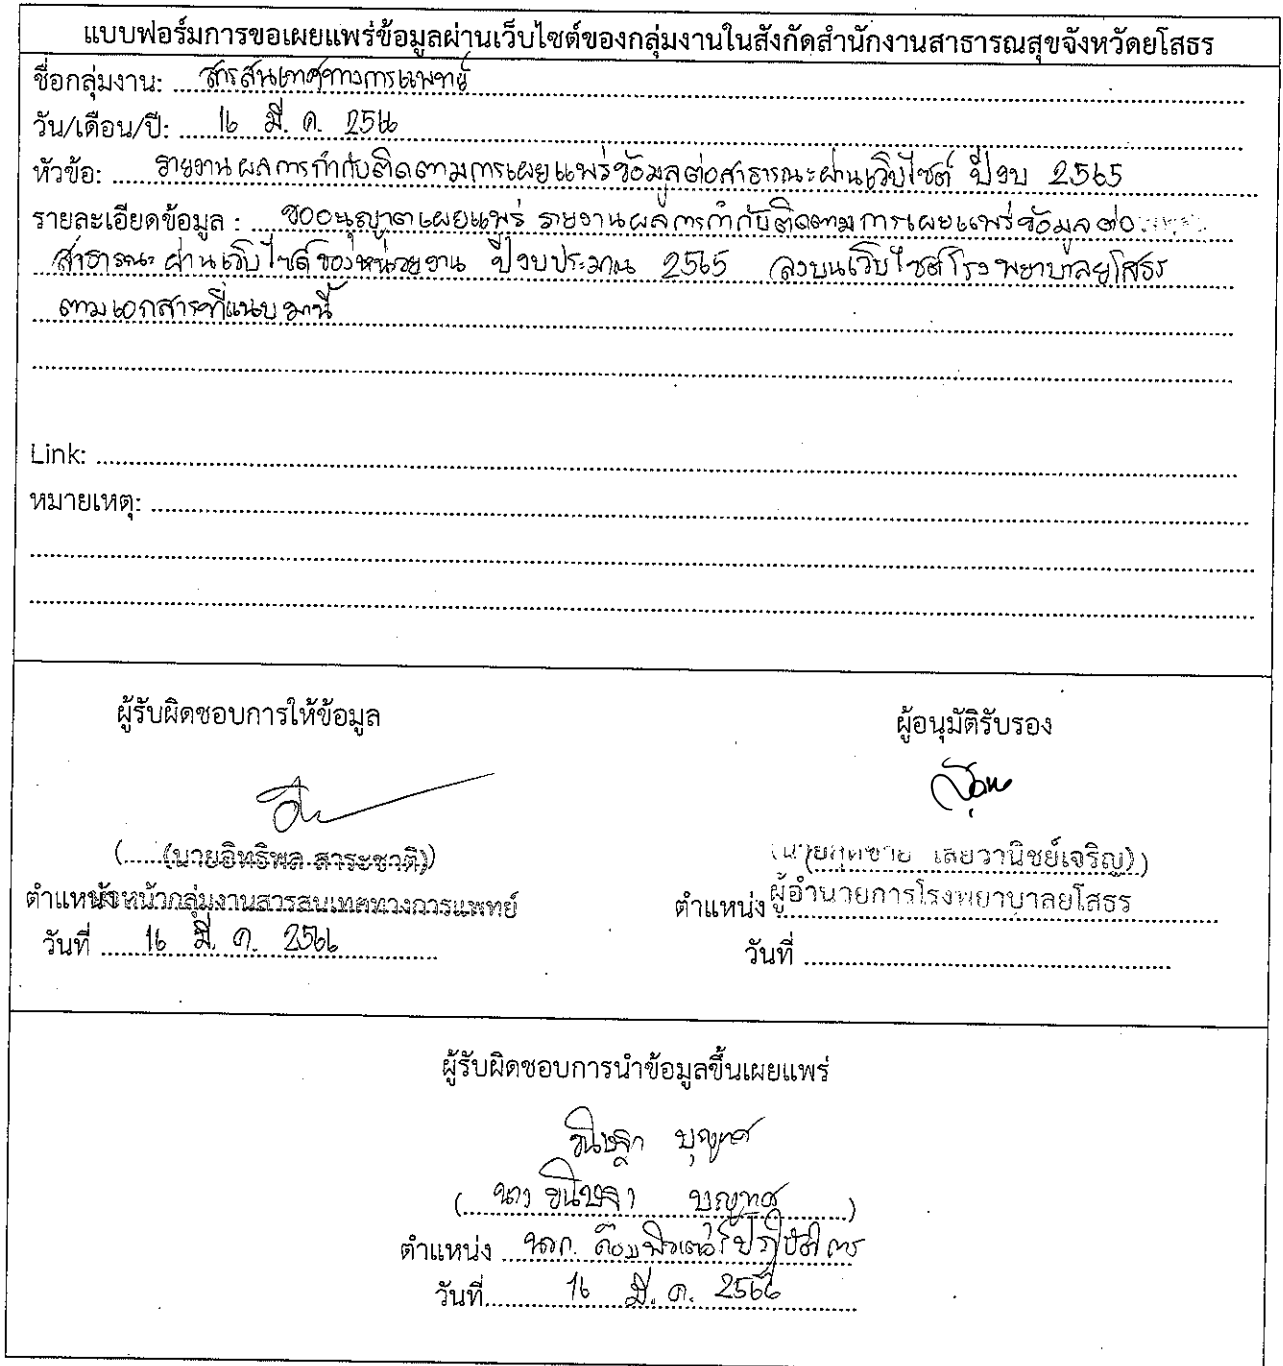 แบบฟอร์มการขอเผยแพร่ข้อมูลผ่านเว็บไซต์ของกลุ่มงานในสังกัดสำนักงานสาธารณสุขจังหวัดยโสธร
ชื่อกลุ่มงาน: สารสนเทศทางการแพทย์
วัน/เดือน/ปี: 16 มี.ค. 2566
หัวข้อ: รายงานผลการกำกับติดตามการเผยแพร่ข้อมูลต่อสาธารณะผ่านเว็บไซต์ ปีงบ 2565
รายละเอียดข้อมูล : ขออนุญาตเผยแพร่ รายงานผลการกำกับติดตามการเผยแพร่ข้อมูลต่อ
สาธารณะ ผ่านเว็บไซต์ของหน่วยงาน ปีงบประมาณ 2565 ลงบนเว็บไซต์โรงพยาบาลยโสธร
ตามเอกสารที่แนบมานี้
Link:
หมายเหตุ:
ผู้รับผิดชอบการให้ข้อมูล
ผู้อนุมัติรับรอง
(นายอิทธิพล สาระชาติ)
เลยวานิชย์เจริญ)
ตำแหน่ง หัวหน้ากลุ่มงานสารสนเทศทางการแพทย์
ตำแหน่ง ผู้อำนวยการโรงพยาบาลยโสธร
วันที่ 16 มี.ค. 2566
วันที่
ผู้รับผิดชอบการนำข้อมูลขึ้นเผยแพร่
บุญทศ
( นาง บุญทศ )
ตำแหน่ง นวก. คอมพิวเตอร์ปฏิบัติการ
วันที่ 16 มี.ค. 2566